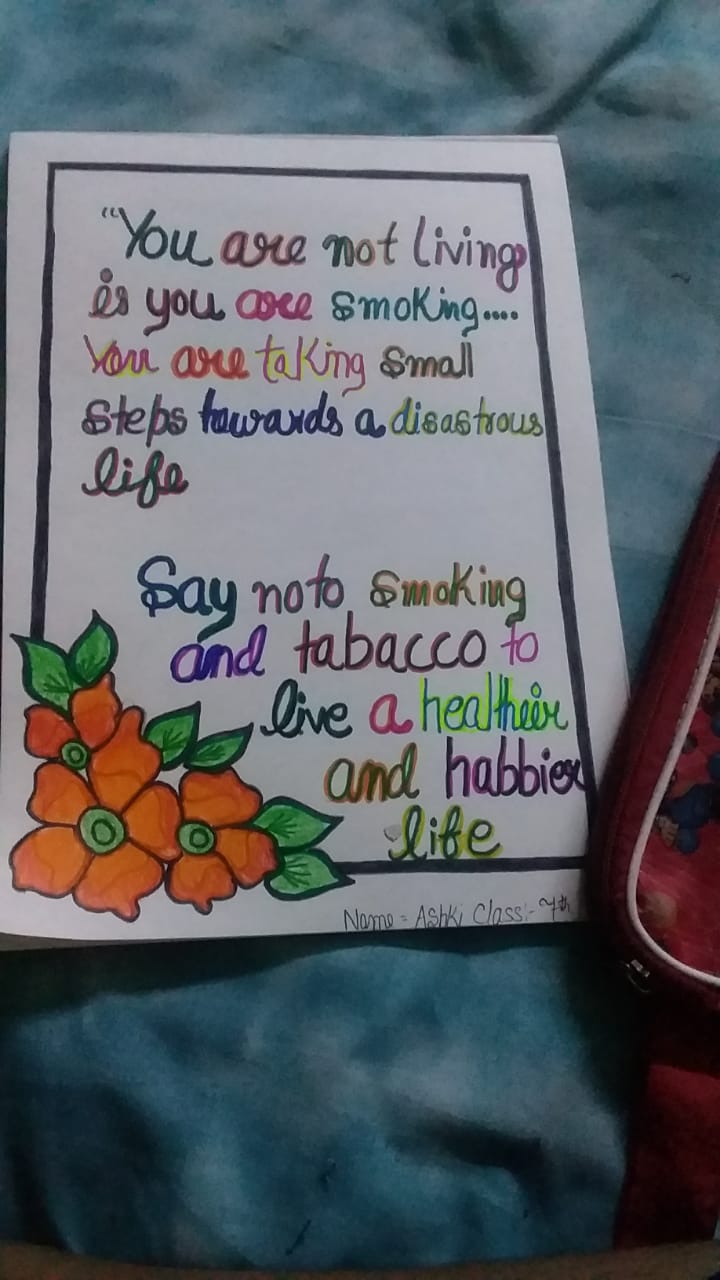 "You are not living
is you are smoking....
You are taking small
steps towards a disastrous
life
Say no to smoking
and tabacco to
live a healtheir
and habbier
life
Name = Ashki Class:- 7th